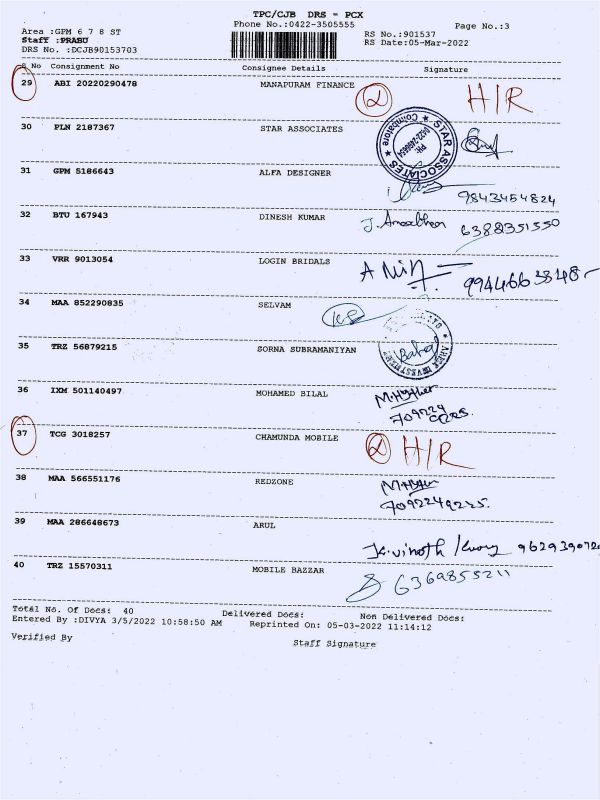 TPC/CJB DRS = PCX
Phone No.:0422-3505555 Page No.:3
Area :GPM 6 7 8 ST RS No.:901537
Staff :PRABU RS Date:05-Mar-2022
DRS No. :DCJB90153703
S No Consignment No Consignee Details Signature
29 ABI 20220290478 MANAPURAM FINANCE H/R
30 PLN 2187367 STAR ASSOCIATES
STAR ASSOCIATES ★ Coimbatore ★
31 GPM 5186643 ALFA DESIGNER
9843454824
32 BTU 167943 DINESH KUMAR 6388351550
33 VRR 9013054 LOGIN BRIDALS
34 MAA 852290835 SELVAM
35 TRZ 56879215 SORNA SUBRAMANIYAN
36 IXM 501140497 MOHAMED BILAL
37 TCG 3018257 CHAMUNDA MOBILE H/R
38 MAA 566551176 REDZONE
39 MAA 286648673 ARUL
K.vinoth
40 TRZ 15570311 MOBILE BAZZAR 6369855211
Total No. Of Docs: 40 Delivered Docs: Non Delivered Docs:
Entered By :DIVYA 3/5/2022 10:58:50 AM Reprinted On: 05-03-2022 11:14:12
Verified By Staff Signature